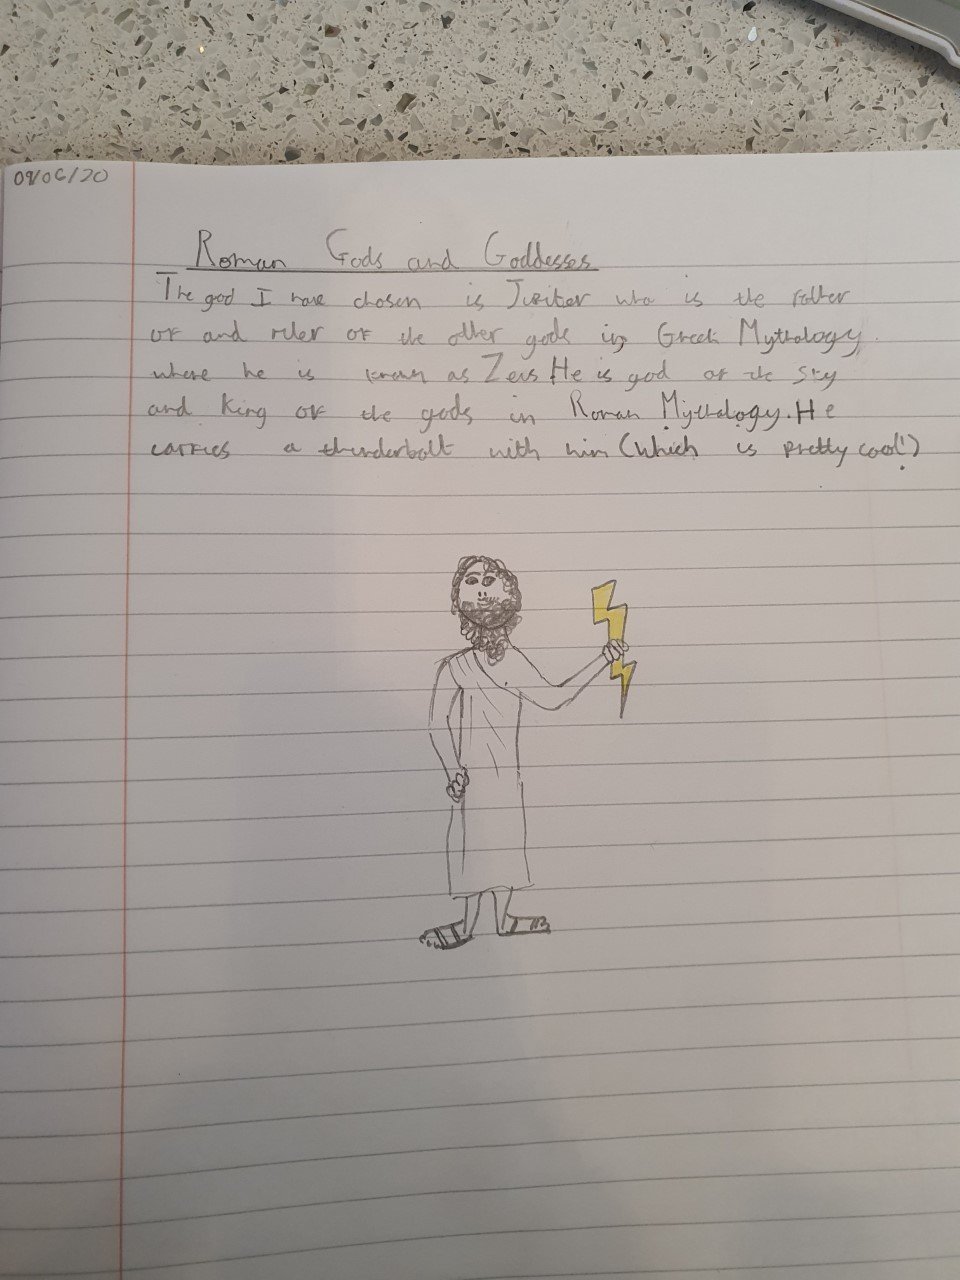 09/06/20
Roman Gods and Goddesses
The god I have chosen is Jupiter who is the father
of and ruler of the other gods in Greek Mythology
where he is known as Zeus He is god of the sky
and King of the gods in Roman Mythology. He
carries a thunderbolt with him (Which is pretty cool!)